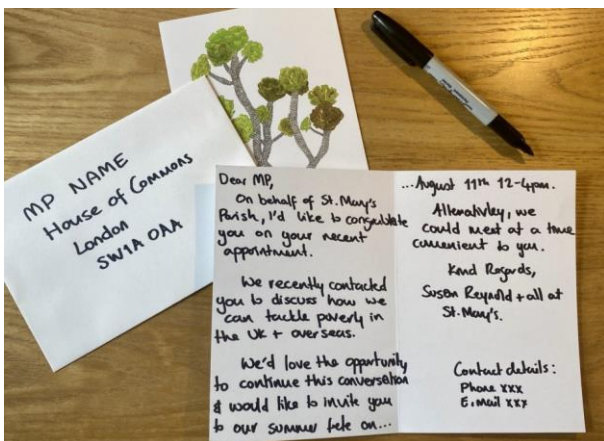 MP NAME
House of Commons
London
SW1A 0AA
Dear MP,
On behalf of St. Mary's
Parish, I'd like to congratulate
you on your recent
appointment.
We recently contacted
you to discuss how we
can tackle poverly in
the UK + overseas.
We'd love the opportunity
to continue this conversation
& would like to invite you
to our summer fete on...
...August 11th 12-4pm.
Alternativley, we
could meet at a time
convenient to you.
Kind Regards,
Susan Reynold + all at
St. Mary's.
Contact details:
Phone xxx
E.mail xxx